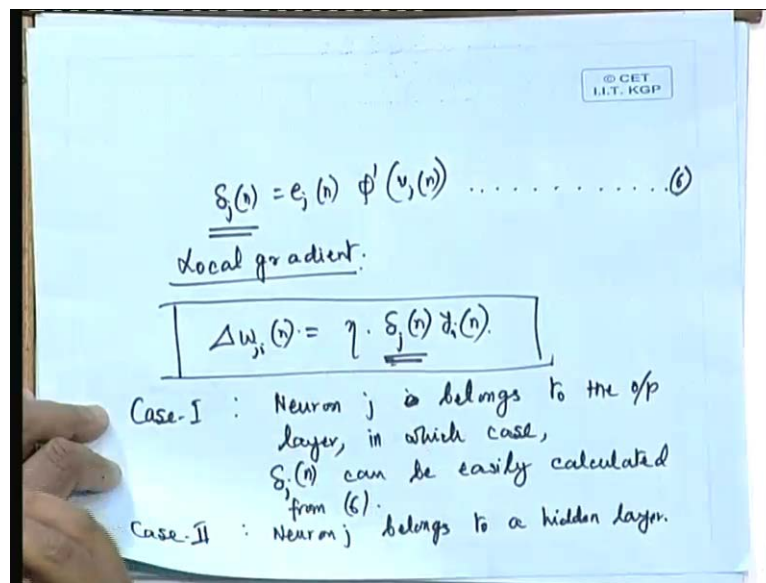 © CET
I.I.T. KGP
δj(n) = ej(n) φ'(vj(n)) ............. (6)
Local gradient:
Δwji(n) = η · δj(n) yi(n).
Case-I : Neuron j belongs to the o/p
layer, in which case,
δj(n) can be easily calculated
from (6).
Case-II : Neuron j belongs to a hidden layer.